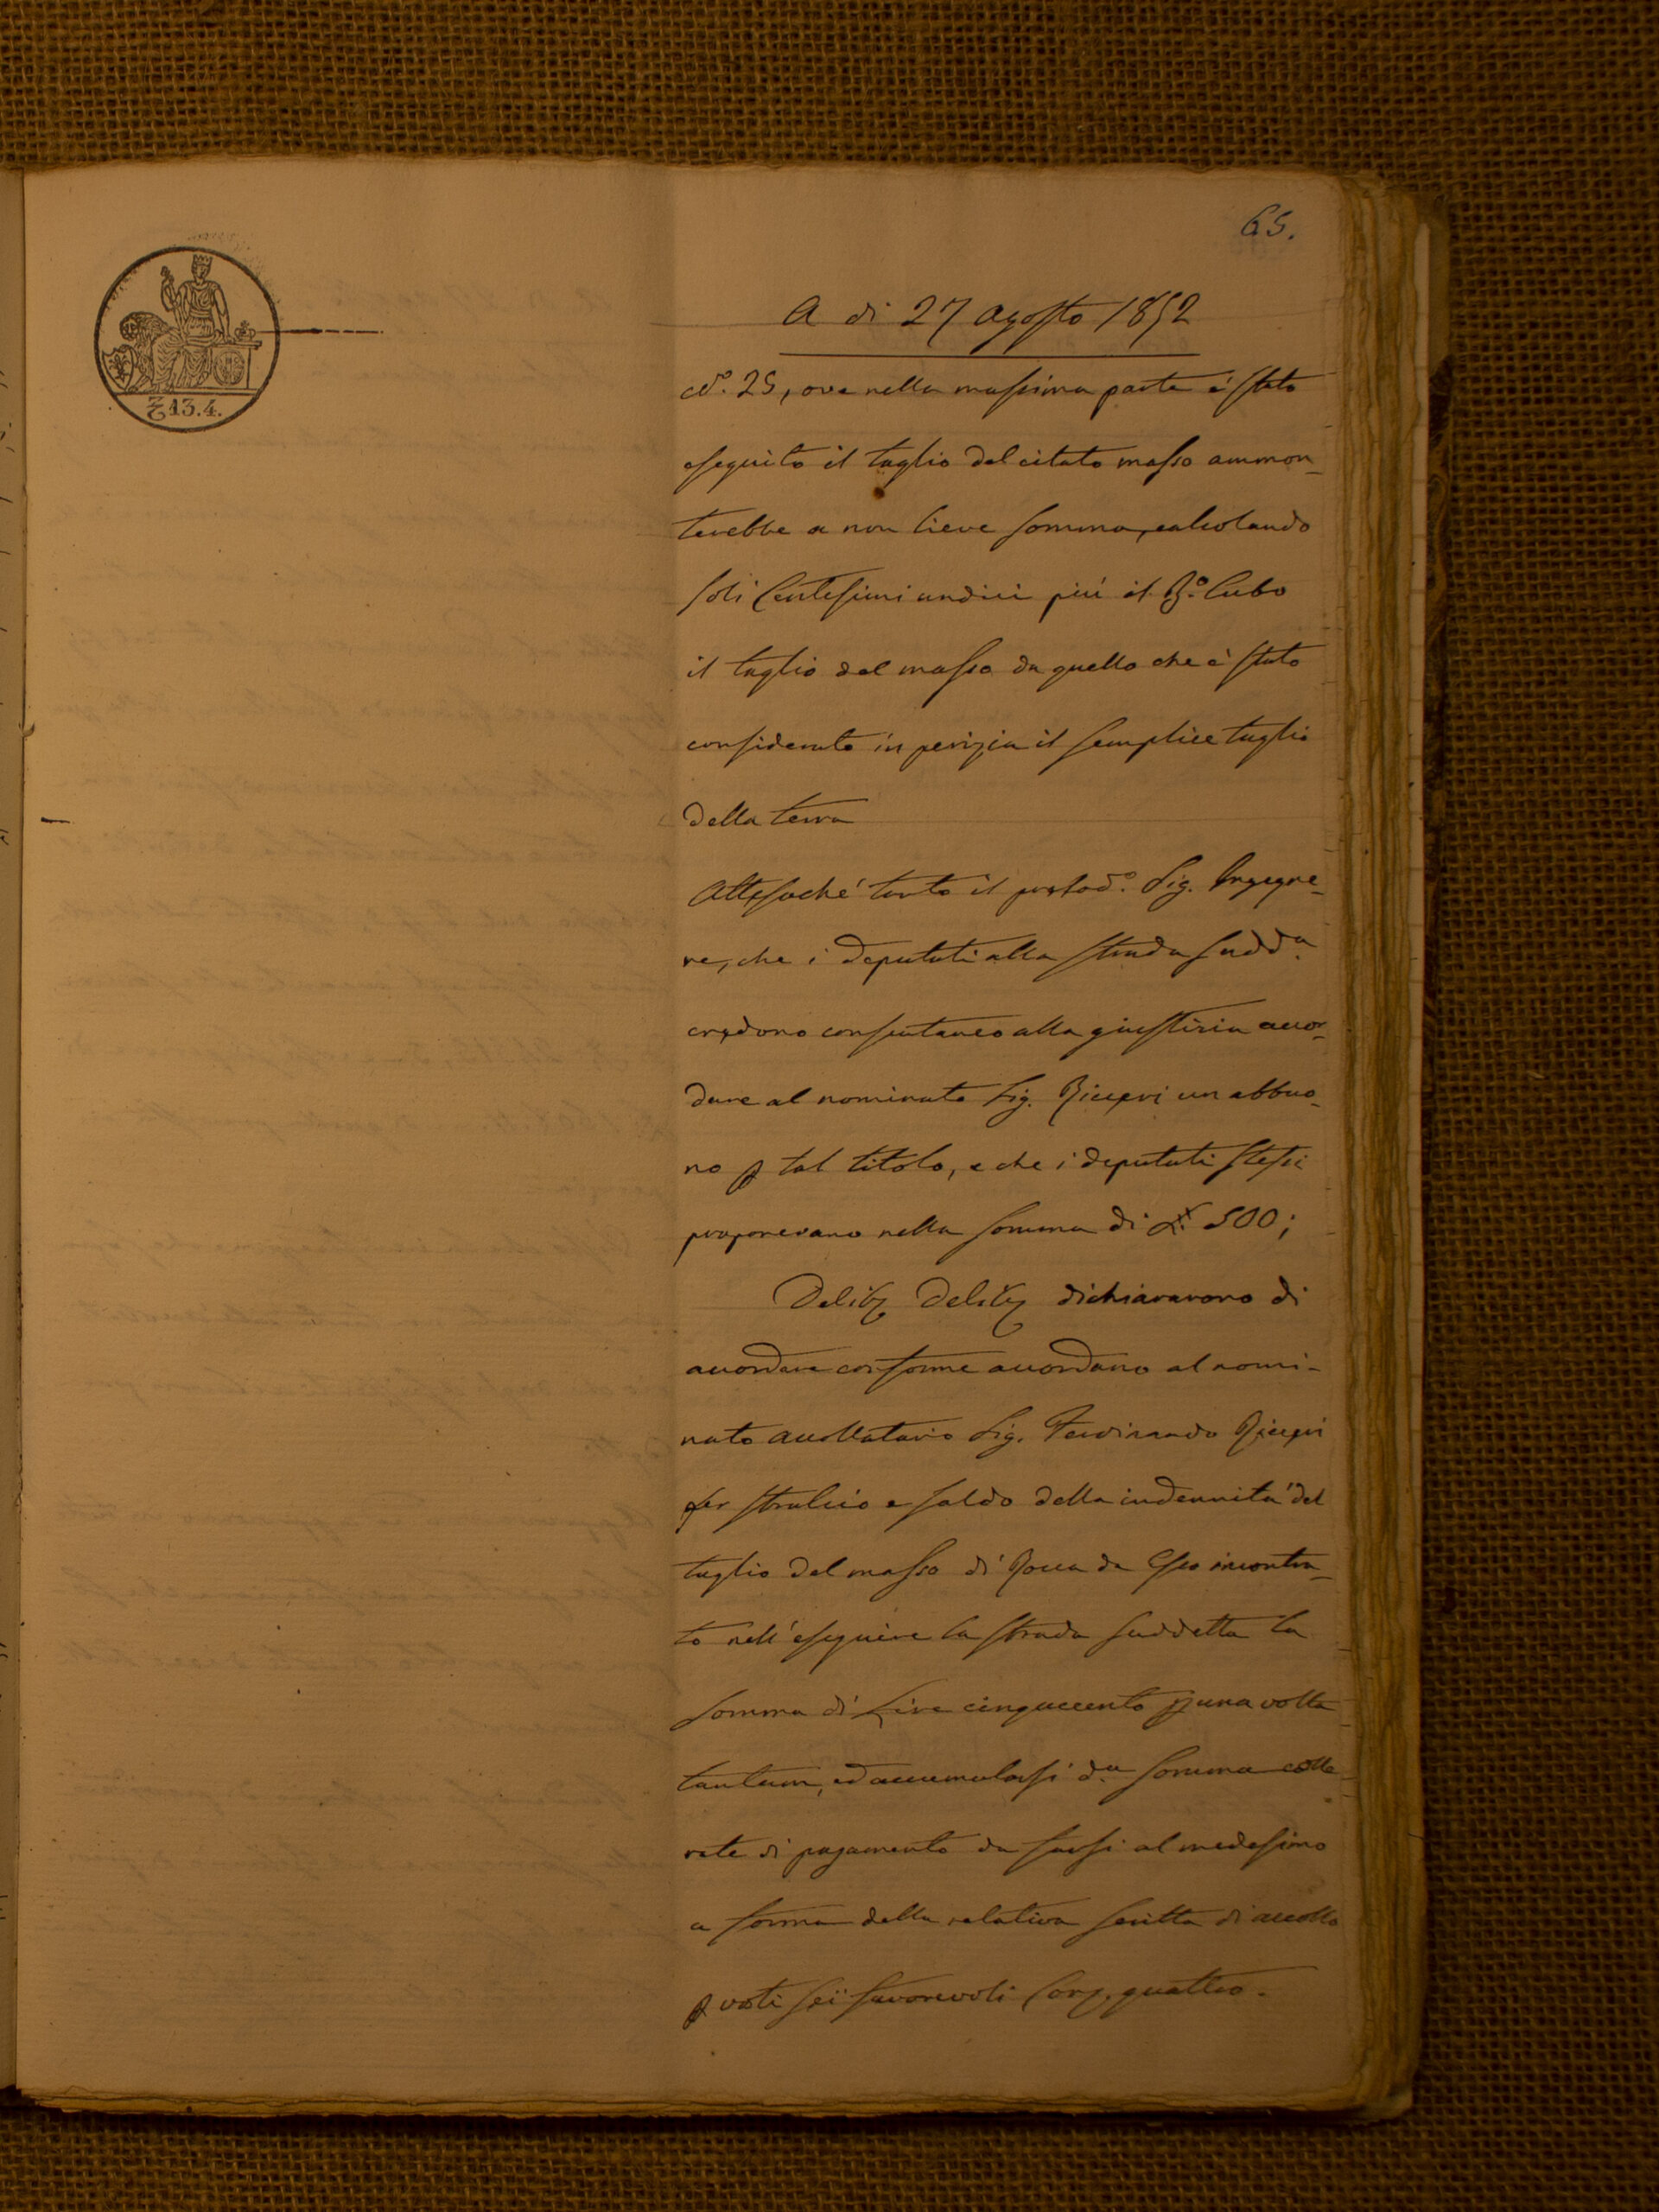 65.
A di 27 Agosto 1852
13.4.
N.° 25, ove nella massima parte è stato
eseguito il taglio del citato masso ammon-
terebbe a non lieve somma, calcolando
soli Centesimi undici più il B.° Cubo
il taglio del masso da quello che è stato
considerato in perizia il semplice taglio
della terra
Attesochè tanto il prelod.° Sig. Ingegne-
re, che i deputati alla strada sudd.a
credono consentaneo alla giustizia accor-
dare al nominato Sig. Ricceri un abbuo-
no p tal titolo, e che i deputati stessi
proponevano nella somma di L. 500;
Delib. Delib. dichiararono di
accordare conforme accordano al nomi-
nato accollatario Sig. Ferdinando Ricceri
per stralcio e saldo della indennità del
taglio del masso di Rocca da Esso incontra-
to nell'eseguire la strada suddetta la
somma di Lire cinquecento p una volta
tantum, ed accumularsi d.a somma colle
rate di pagamento da farsi al medesimo
a forma della relativa scritta di accollo
p voti sei favorevoli Cont. quattro.